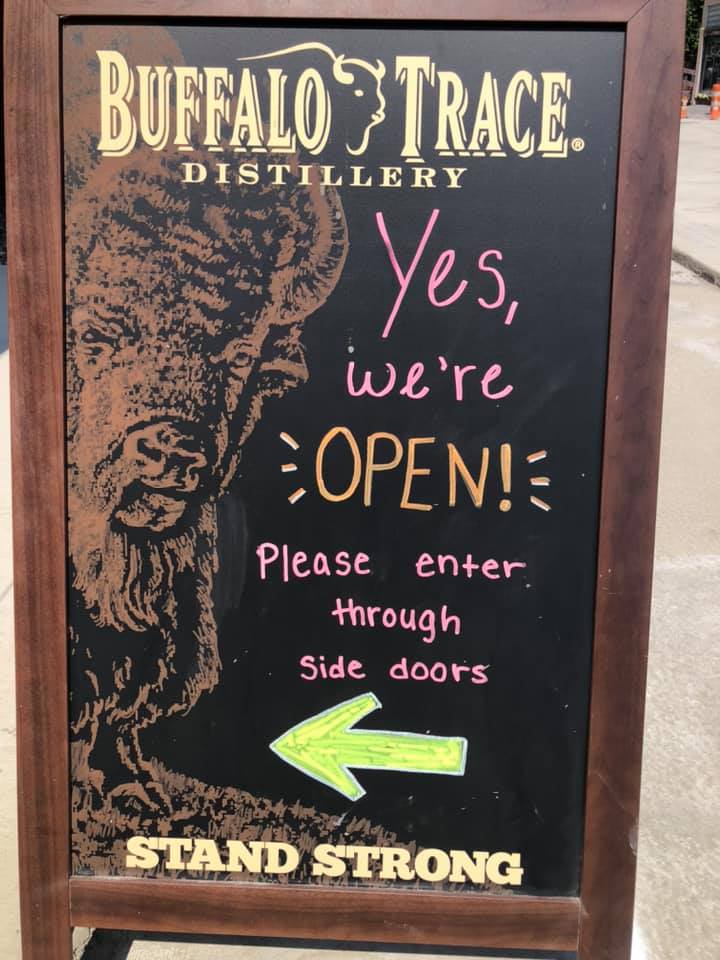 BUFFALO TRACE®
DISTILLERY
Yes,
we're
OPEN!
Please enter
through
side doors
STAND STRONG